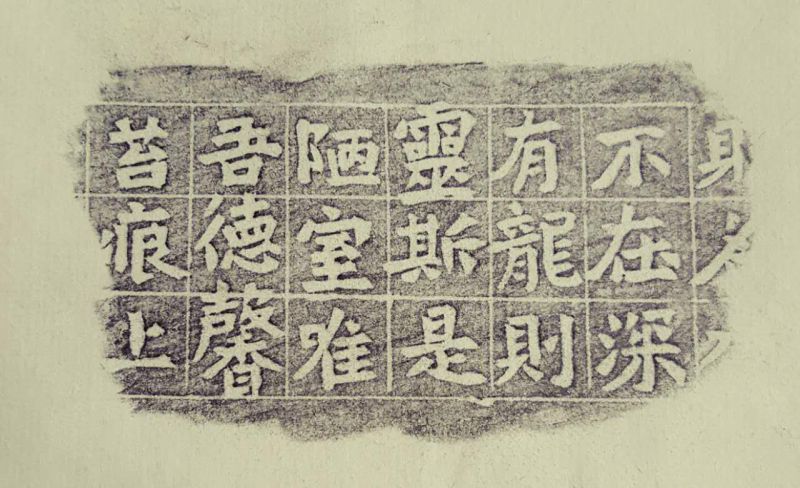 不在深
有龍則
靈斯是
陋室惟
吾德馨
苔痕上